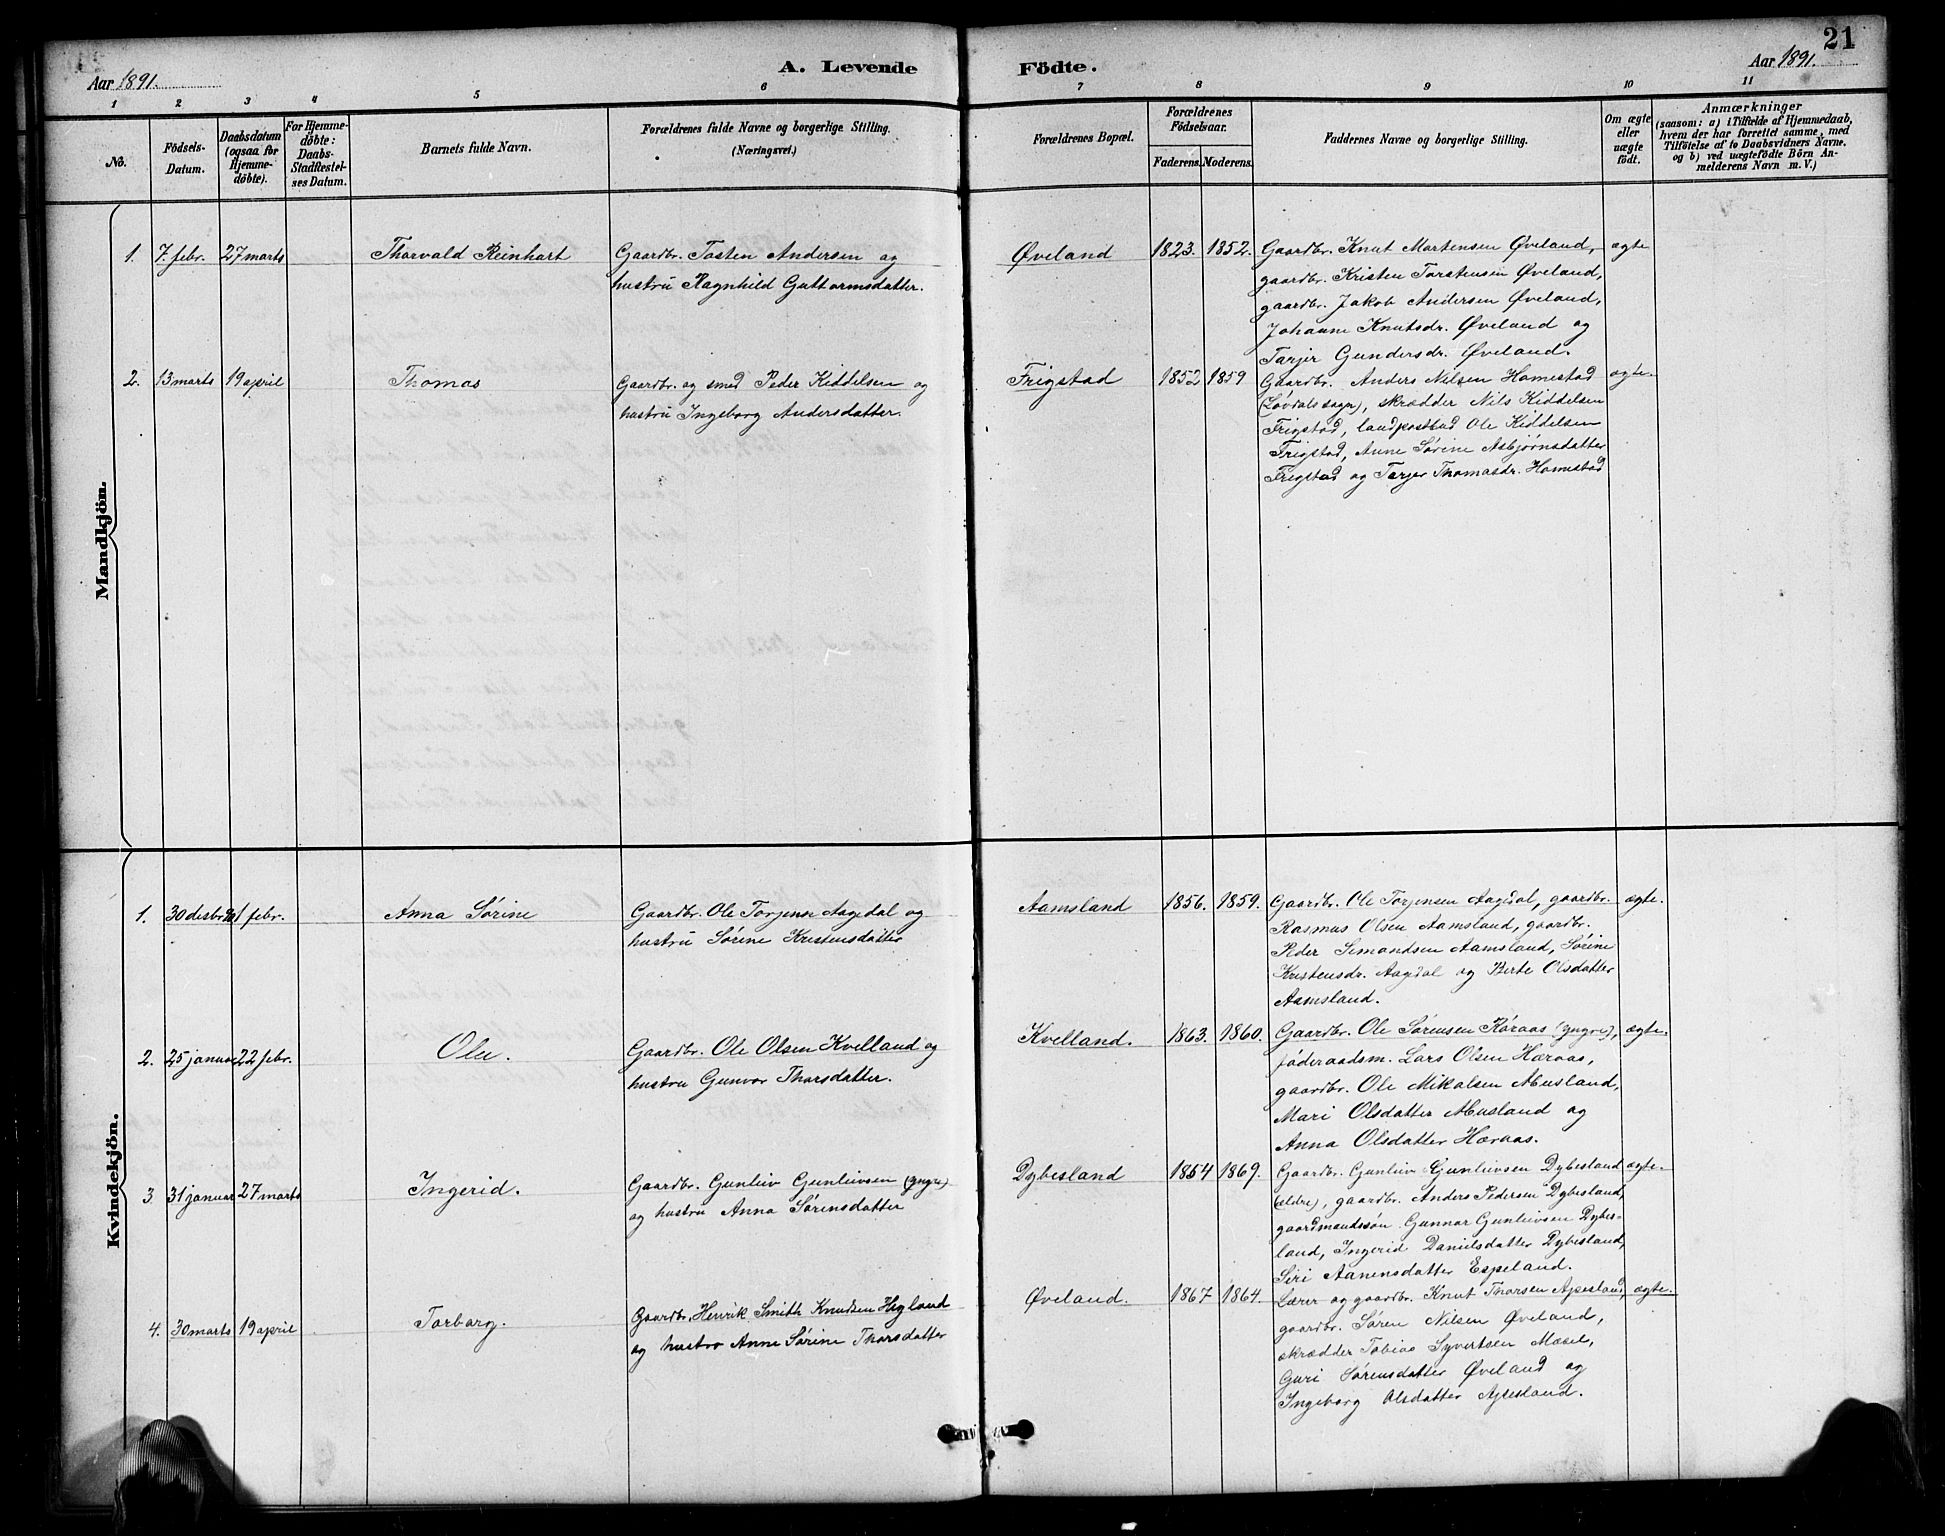 21
Aar 1891.
A. Levende Födte.
Aar 1891.
1 2 3 4 5 6 7 8 9 10 11
No.
Födsels-
Datum.
Daabsdatum
(ogsaa for
Hjemme-
döbte).
For Hjemme-
döbte:
Daabs-
Stadfæstel-
ses Datum.
Barnets fulde Navn.
Forældrenes fulde Navne og borgerlige Stilling.
(Næringsvei.)
Forældrenes Bopæl.
Forældrenes
Födselsaar.
Faderens. Moderens.
Faddernes Navne og borgerlige Stilling.
Om ægte
eller
uægte
födt.
Anmærkninger
(saasom: a) i Tilfælde af Hjemmedaab,
hvem der har forrettet samme, med
Tilföielse af to Daabsvidners Navne.
og b) ved uægtefödte Börn An-
melderens Navn m. V.)
Mandkjön.
1. 7. febr. 27 marts Thorvald Reinhart
Gaardbr. Tosten Andersen og
hustru Ragnhild Guttormsdatter.
Øveland 1823. 1852.
Gaardbr. Knut Mortensen Øveland,
gaardbr. Kristen Torstensen Øveland,
gaardbr. Jakob Andersen Øveland,
Johanne Knutsdr. Øveland og
Tarjer Gundersdr. Øveland.
ægte
2. 13 marts 19 april Thomas
Gaardbr. og smed Peder Kiddelsen og
hustru Ingeborg Andersdatter.
Frigstad 1852 1859
Gaardbr. Anders Nilsen Homestad
(Løvdals sogn), skrædder Nils Kiddelsen
Frigstad, landpostbud Ole Kiddelsen
Frigstad, Anne Sørine Asbjørnsdatter
Frigstad og Tarjer Thomasdr. Homestad
ægte.
Kvindekjön.
1. 30 desbr. 90 1 febr. Anna Sørine
Gaardbr. Ole Torjensen Aagedal og
hustru Sørine Kristensdatter
Aamsland 1856. 1859.
Gaardbr. Ole Torjensen Aagedal, gaardbr.
Rasmus Olsen Aamsland, gaardbr.
Peder Simondsen Aamsland, Sørine
Kristensdr. Aagedal og Berte Olsdatter
Aamsland.
ægte.
2. 25 januar 22 febr. Olu.
Gaardbr. Ole Olsen Kvelland og
hustru Gunvor Thorsdatter.
Kvelland. 1863. 1860.
Gaardbr. Ole Sørensen Røraas (yngre),
føderaadsm. Lars Olsen Høraas,
gaardbr. Ole Mikalsen Musland,
Mari Olsdatter Musland og
Anna Olsdatter Høraas.
ægte.
3 31 januar 27 marts Ingerid.
Gaardbr. Gunleiv Gunleivsen (yngre)
og hustru Anna Sørensdatter
Dybesland 1854 1869.
Gaardbr. Gunleiv Gunleivsen Dybesland
(eldre), gaardbr. Anders Pedersen Dybesland,
gaardmandssøn Gunnar Gunleivsen Dybes-
land, Ingerid Danielsdatter Dybesland,
Siri Aanensdatter Espeland.
ægte.
4. 30 marts 19 april Torborg.
Gaardbr. Henrik Smith Knudsen Høyland
og hustru Anne Sørine Thorsdatter
Øveland. 1867 1864.
Lærer og gaardbr. Knut Thorsen Apesland,
gaardbr. Søren Nilsen Øveland,
skrædder Tobias Syvertsen Mæsel,
Guri Sørensdatter Øveland og
Ingeborg Olsdatter Apesland.
ægte.